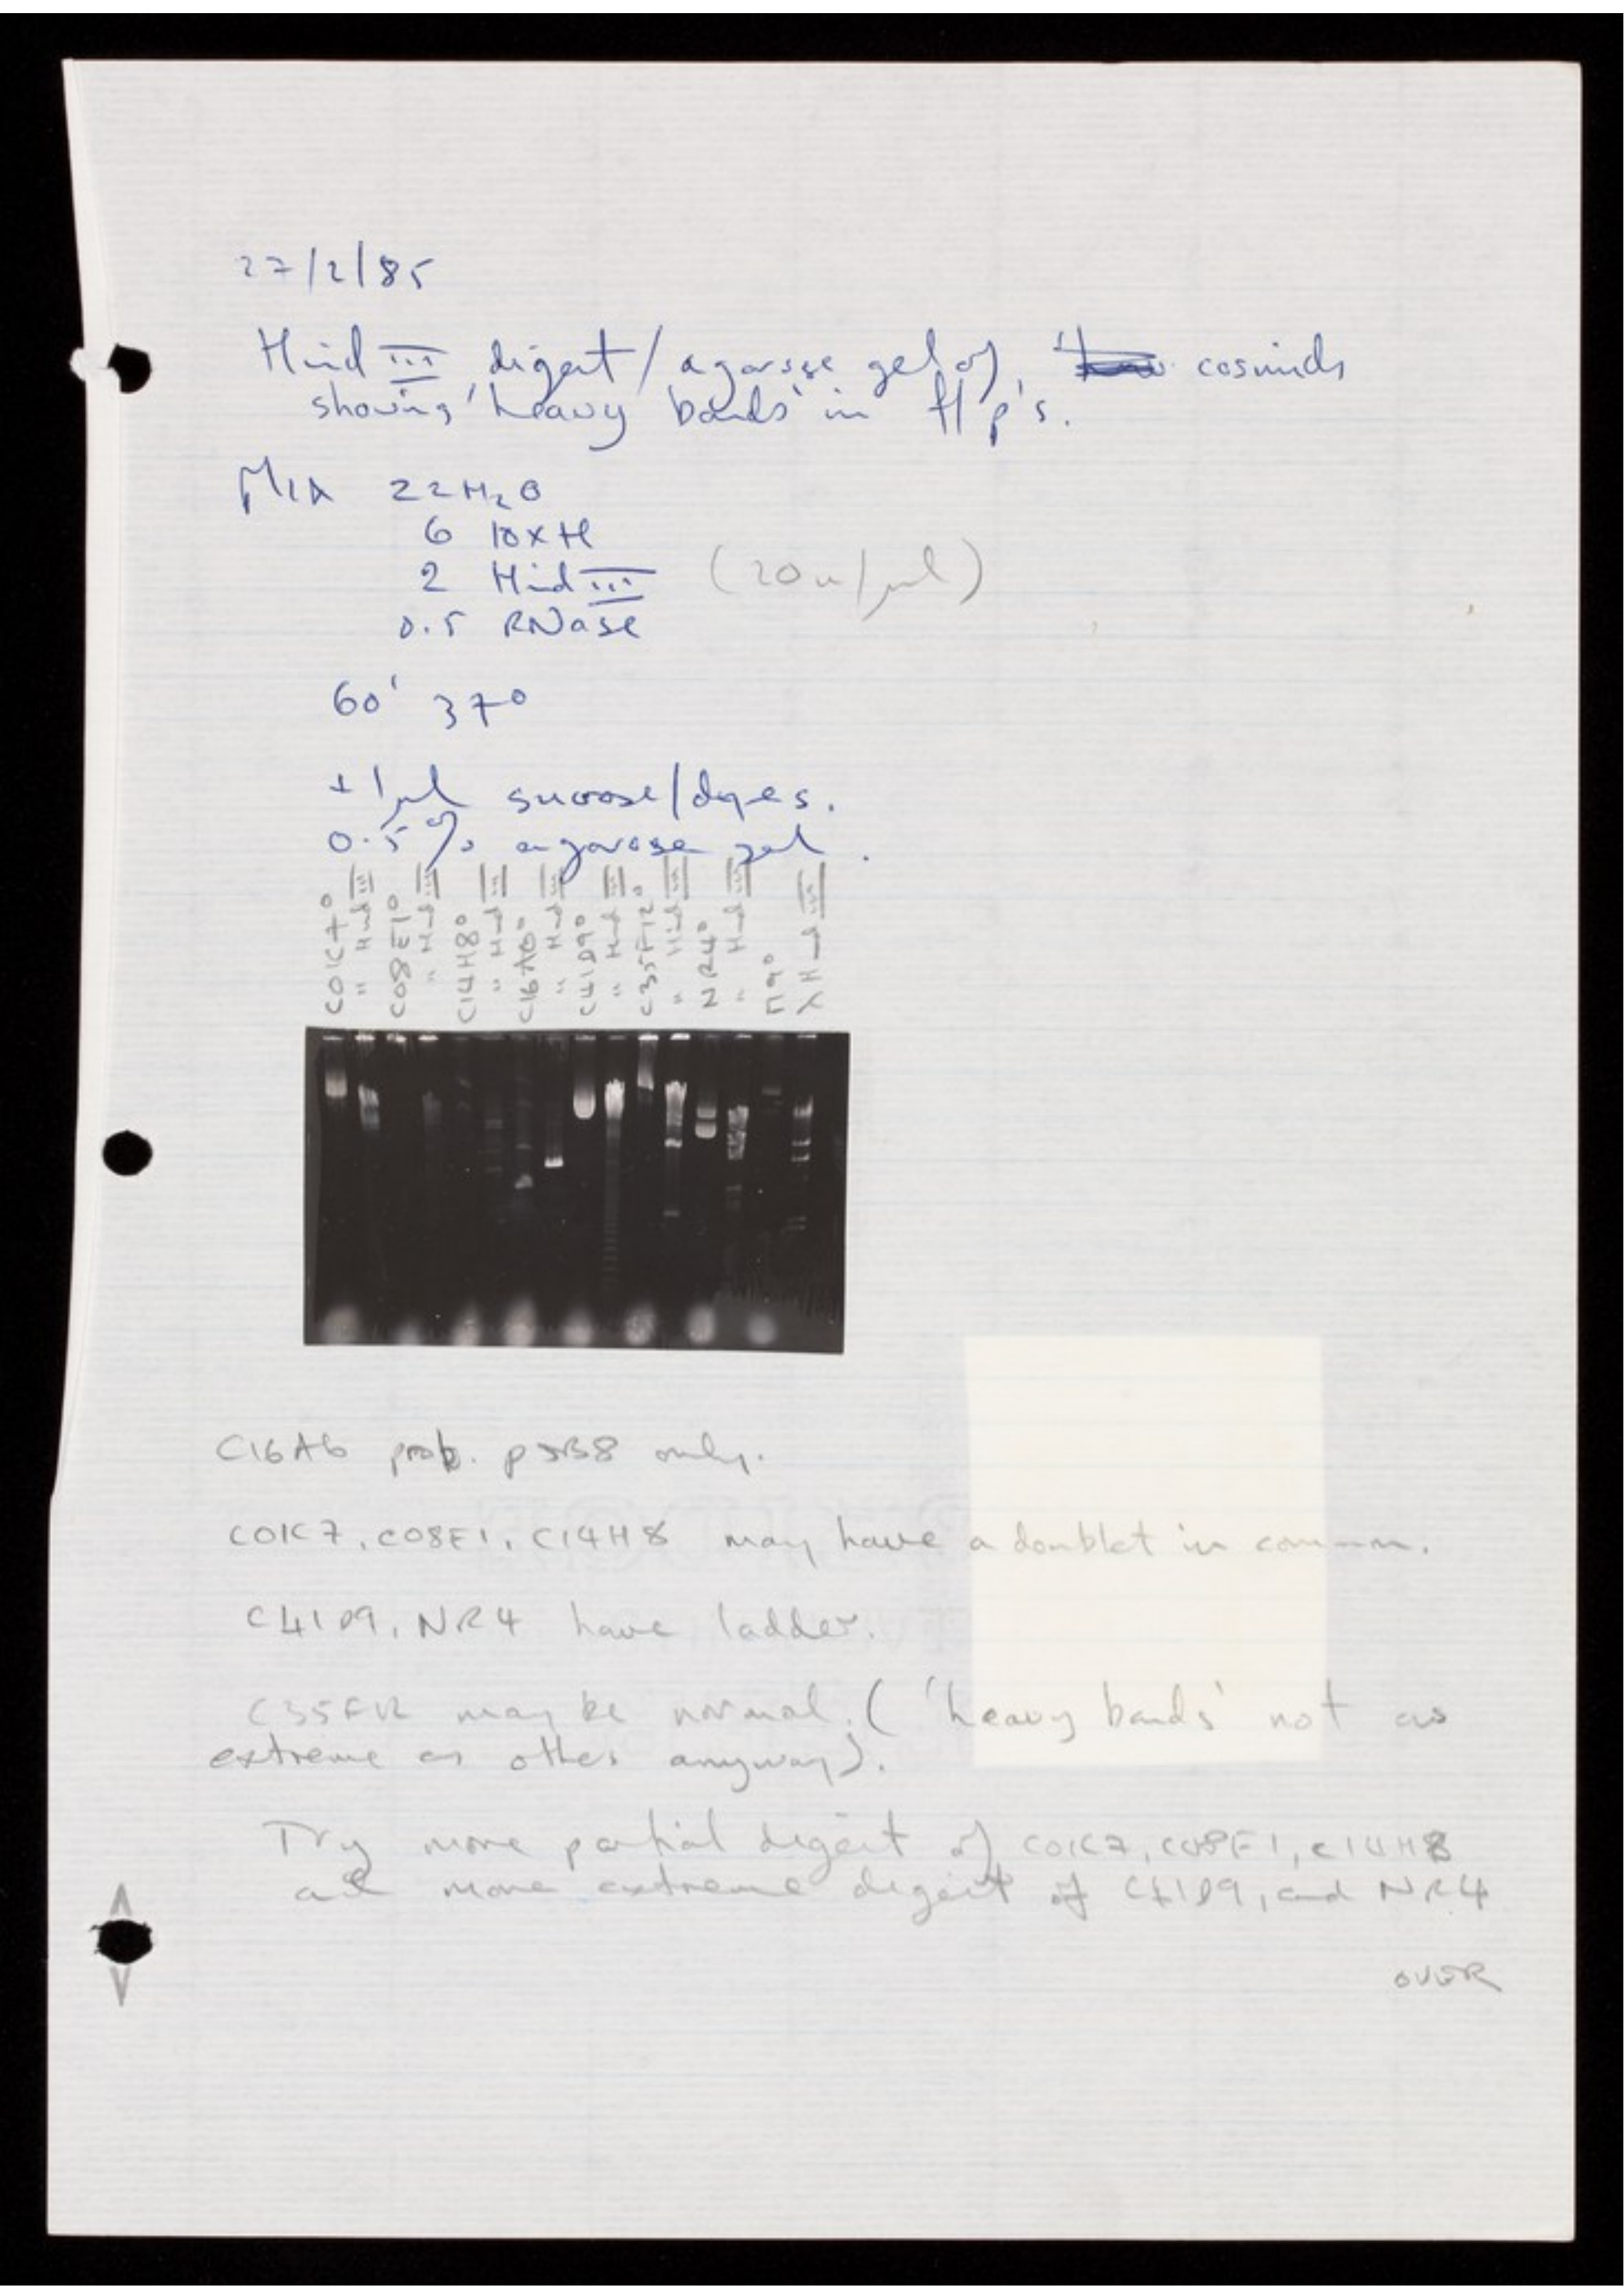 27/2/85
Hind III digest/agarose gel of cosmids
showing 'heavy bands' in f/p's.
Mix 22 H₂O
6 10xH
2 Hind III (20u/µl)
0.5 RNase
60' 37°
+1µl sucrose/dyes.
0.5% agarose gel.
C01C7°
" Hind III
C08E1°
" Hind III
C14H8°
" Hind III
C16A6°
" Hind III
C41D9°
" Hind III
C35F12°
" Hind III
NR4°
" Hind III
λ Hind III
C16A6 prob. pJB8 only.
C01C7, C08E1, C14H8 may have a doublet in common.
C41D9, NR4 have ladder.
C35F12 may be normal. ('heavy bands' not as
extreme as others anyway).
Try more partial digest of C01C7, C08E1, C14H8
and more extreme digest of C41D9, and NR4
OVER